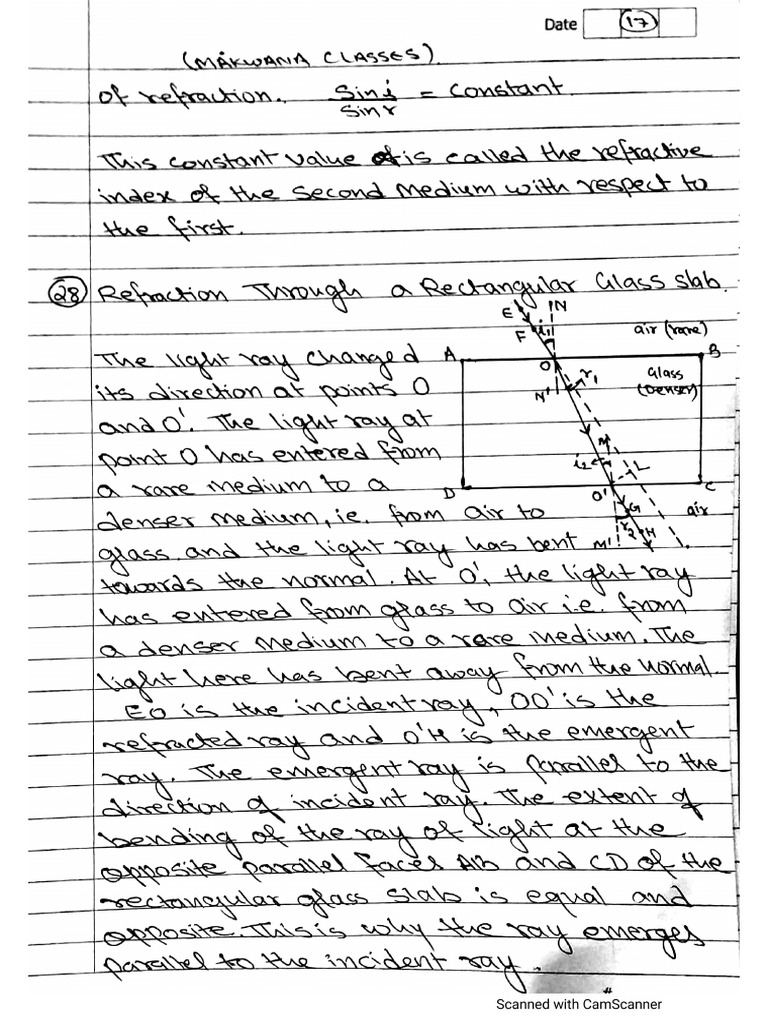 Date 17
(MAKWANA CLASSES)
of refraction. Sin i / Sin r = constant
This constant value of is called the refractive
index of the second medium with respect to
the first.
28 Refraction Through a Rectangular Glass slab.
E N
F i1 air (rare)
The light ray changed A O B
its direction at points O r1 Glass (Denser)
and O'. The light ray at N'
point O has entered from M
a rare medium to a i2 L
denser medium, ie. from air to D O' C
G air
glass and the light ray has bent M' r2 H
towards the normal. At O', the light ray
has entered from glass to air i.e. from
a denser medium to a rare medium. The
light here has bent away from the normal.
EO is the incident ray, OO' is the
refracted ray and O'H is the emergent
ray. The emergent ray is parallel to the
direction of incident ray. The extent of
bending of the ray of light at the
opposite parallel faces AB and CD of the
rectangular glass slab is equal and
opposite. This is why the ray emerges
parallel to the incident ray.
Scanned with CamScanner